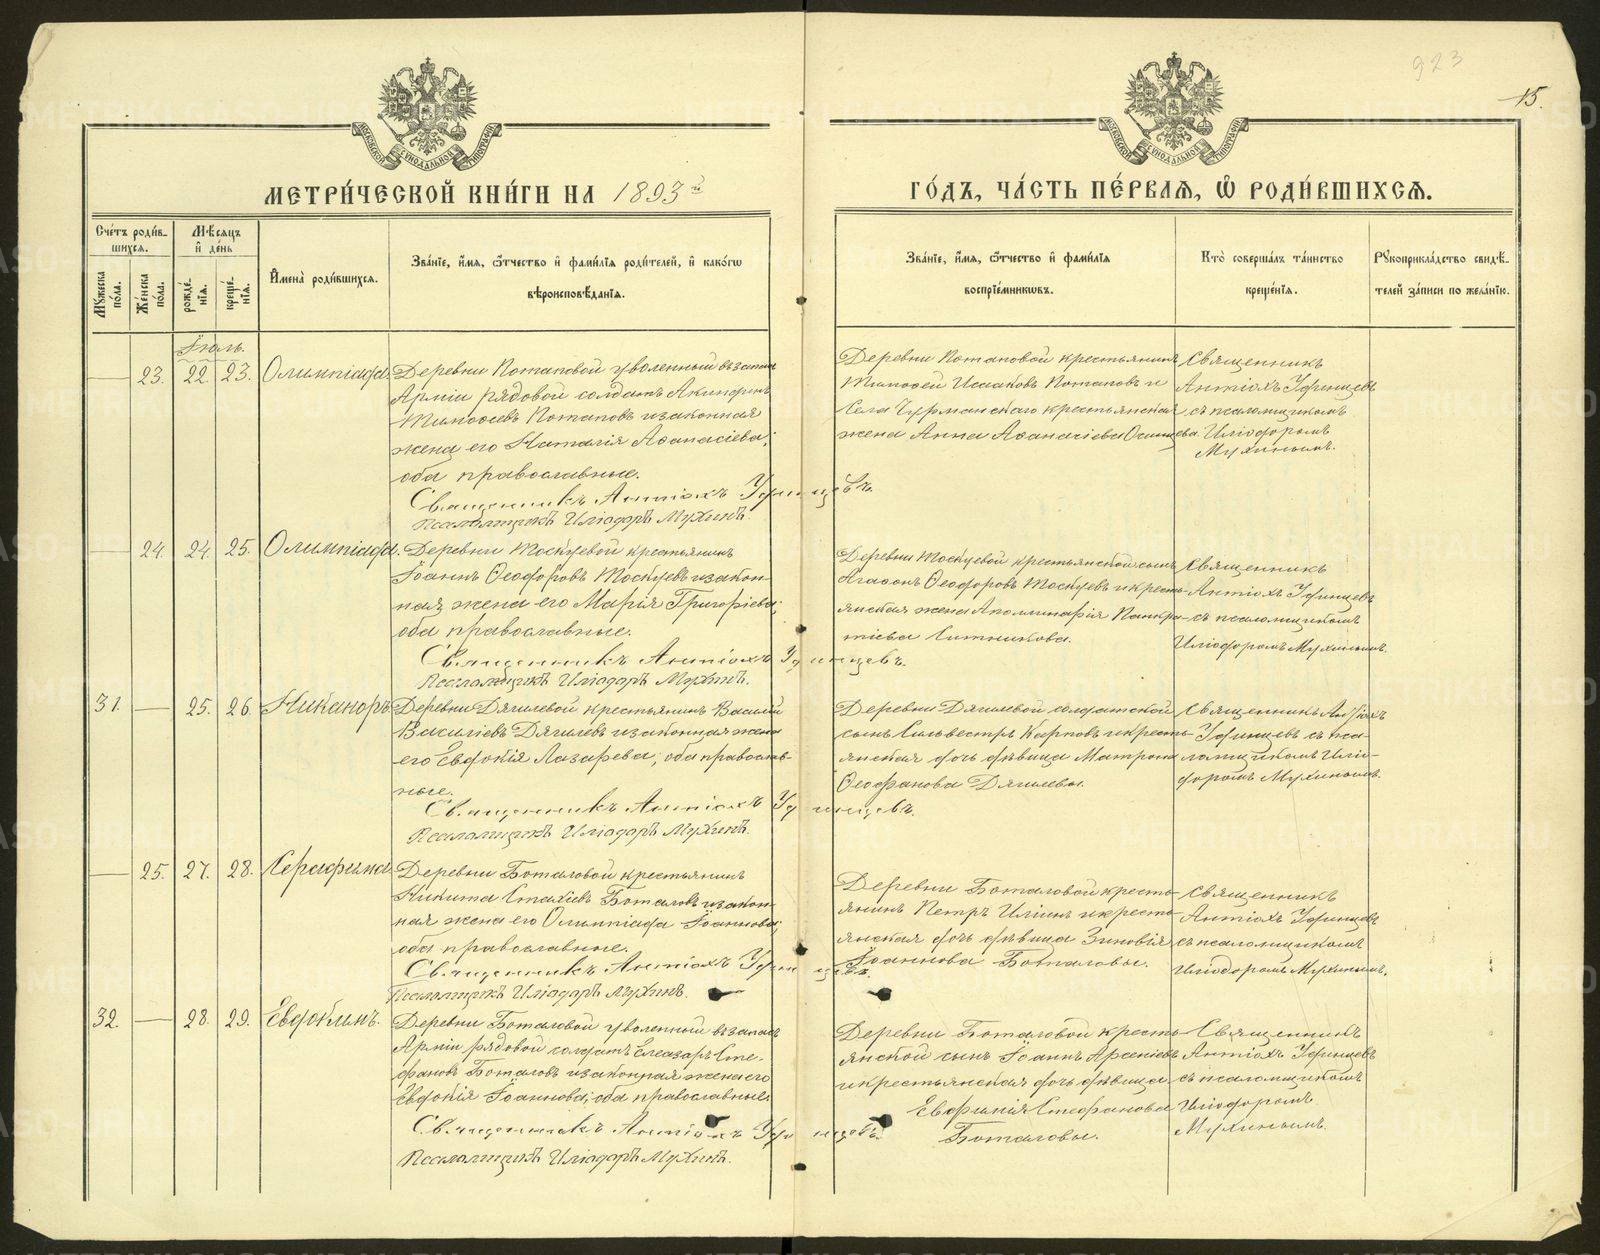 923
15.
МЕТРИ́ЧЕСКОЙ КНИ́ГИ НА 1893й
ГО́ДЪ, ЧА́СТЬ ПЕ́РВАЯ, Ѡ РОДИ́ВШИХСЯ.
Сче́тъ роди́в-
шихся.
Мѣ́сяцъ
и҆ де́нь
Мꙋ́жеска по́ла.
Же́нска по́ла.
рожде́-
нїя.
креще́-
нїя.
И҆мена̀ роди́вшихся.
Зва́нїе, и҆́мя, ѻ҆́тчество и҆ фами́лїя роди́телей, и҆ како́гѡ
вѣроисповѣ́данїя.
Зва́нїе, и҆́мя, ѻ҆́тчество и҆ фами́лїя
воспрїе́мникѡвъ.
Кто̀ соверша́лъ та́инство
креще́нїя.
Рꙋкоприкла́дство свидѣ́-
телей за́писи по жела́нїю.
Іюль.
— 23. 22. 23. Олимпіада.
Деревни Потаповой уволенный въ запасъ
Арміи рядовой солдатъ Акиндинъ
Тимофеевъ Потаповъ и законная
жена его Наталія Аѳанасіева;
оба православные.
Священникъ Антіохъ Удинцевъ.
Псаломщикъ Иліодоръ Мухинъ.
Деревни Потаповой крестьянинъ
Тимофей Исааковъ Потаповъ и
села крестьянская
жена Анна Аѳанасіева
Священникъ
Антіохъ Удинцевъ
съ псаломщикомъ
Иліодоромъ
Мухинымъ.
— 24. 24. 25. Олимпіада.
Деревни крестьянинъ
Іоаннъ Ѳеодоровъ и закон-
ная жена его Марія Григоріева;
оба православные.
Священникъ Антіохъ Удинцевъ.
Псаломщикъ Иліодоръ Мухинъ.
Деревни крестьянской сынъ
Агафонъ Ѳеодоровъ и кресть-
янская жена Аполлинарія Панкра-
тіева Ситникова.
Священникъ
Антіохъ Удинцевъ
съ псаломщикомъ
Иліодоромъ Мухинымъ.
31. — 25. 26. Никаноръ.
Деревни Дягилевой крестьянинъ Василій
Василіевъ Дягилевъ и законная жена
его Евдокія Лазарева; оба православ-
ные.
Священникъ Антіохъ Удинцевъ.
Псаломщикъ Иліодоръ Мухинъ.
Деревни Дягилевой солдатской
сынъ Сильвестръ Карповъ и кресть-
янская дочь дѣвица Матрона
Ѳеофанова Дягилевы.
Священникъ Антіохъ
Удинцевъ съ пса-
ломщикомъ Иліо-
доромъ Мухинымъ.
— 25. 27. 28. Серафима.
Деревни Боталовой крестьянинъ
Никита Стахіевъ Боталовъ и закон-
ная жена его Олимпіада Іоаннова;
оба православные.
Священникъ Антіохъ Удинцевъ.
Псаломщикъ Иліодоръ Мухинъ.
Деревни Боталовой кресть-
янинъ Петръ Иліинъ и кресть-
янская дочь дѣвица Зиновія
Іоаннова Боталовы.
Священникъ
Антіохъ Удинцевъ
съ псаломщикомъ
Иліодоромъ Мухинымъ.
32. — 28. 29. Евдокимъ.
Деревни Боталовой уволенный въ запасъ
Арміи рядовой солдатъ Елеазаръ Сте-
фановъ Боталовъ и законная жена его
Евдокія Іоаннова; оба православные.
Священникъ Антіохъ Удинцевъ.
Псаломщикъ Иліодоръ Мухинъ.
Деревни Боталовой кресть-
янской сынъ Іоаннъ Арсеніевъ
и крестьянская дочь дѣвица
Стефанова
Боталовы.
Священникъ
Антіохъ Удинцевъ
съ псаломщикомъ
Иліодоромъ
Мухинымъ.